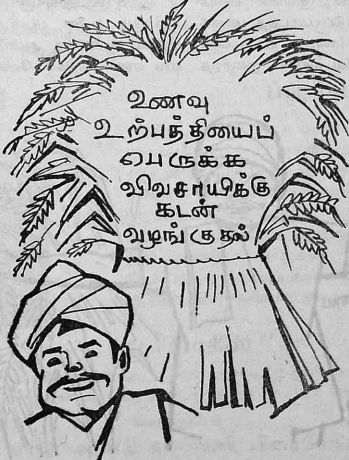 உணவு
உற்பத்தியைப்
பெருக்க
விவசாயிக்கு
கடன்
வழங்குதல்